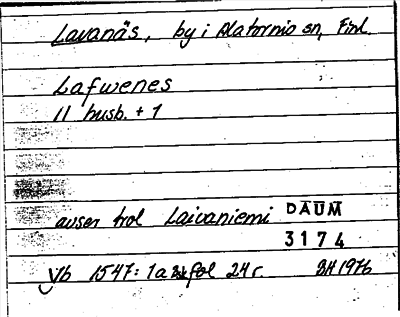 Lavanäs, by i Alatornio sn, Finl.
Lafwenes
11 husb. + 1
avser trol Laivaniemi DAUM
3174
Vb 1547: 1a fol 24 r. BH 1976